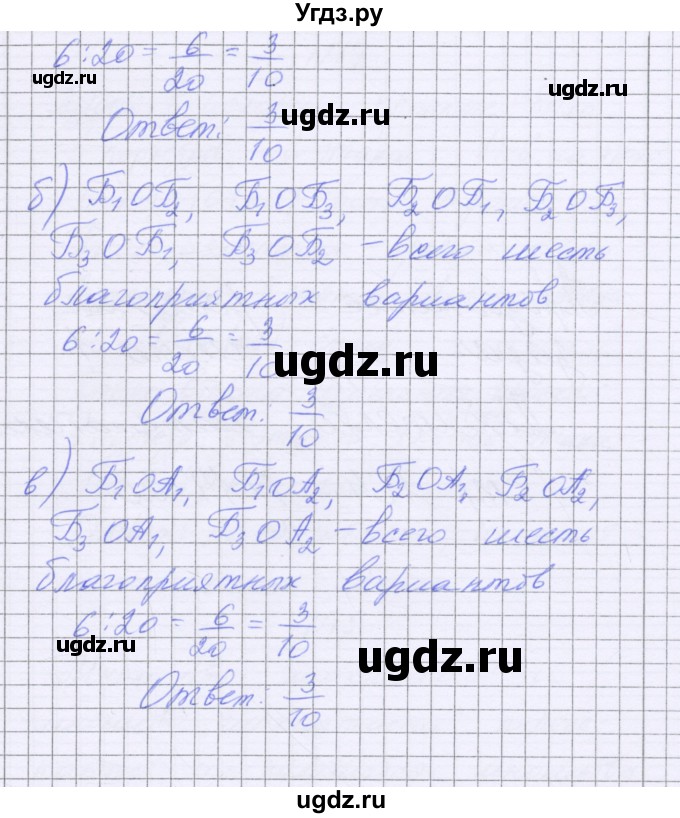 Угдз.ру
6:20 = 6/20 = 3/10
ugdz.ru ugdz.ru
Ответ: 3/10 ugdz.ru
б) Б₁ОБ₂, Б₁ОБ₃, Б₂ОБ₁, Б₂ОБ₃,
Б₃ОБ₁, Б₃ОБ₂ – всего шесть
благоприятных вариантов
6:20 = 6/20 = 3/10 ugdz.ru ugdz.ru
Ответ: 3/10
в) Б₁ОА₁, Б₁ОА₂, Б₂ОА₁, Б₂ОА₂,
Б₃ОА₁, Б₃ОА₂ – всего шесть
благоприятных вариантов
6:20 = 6/20 = 3/10
ugdz.ru ugdz.ru
Ответ: 3/10
ugdz.ru